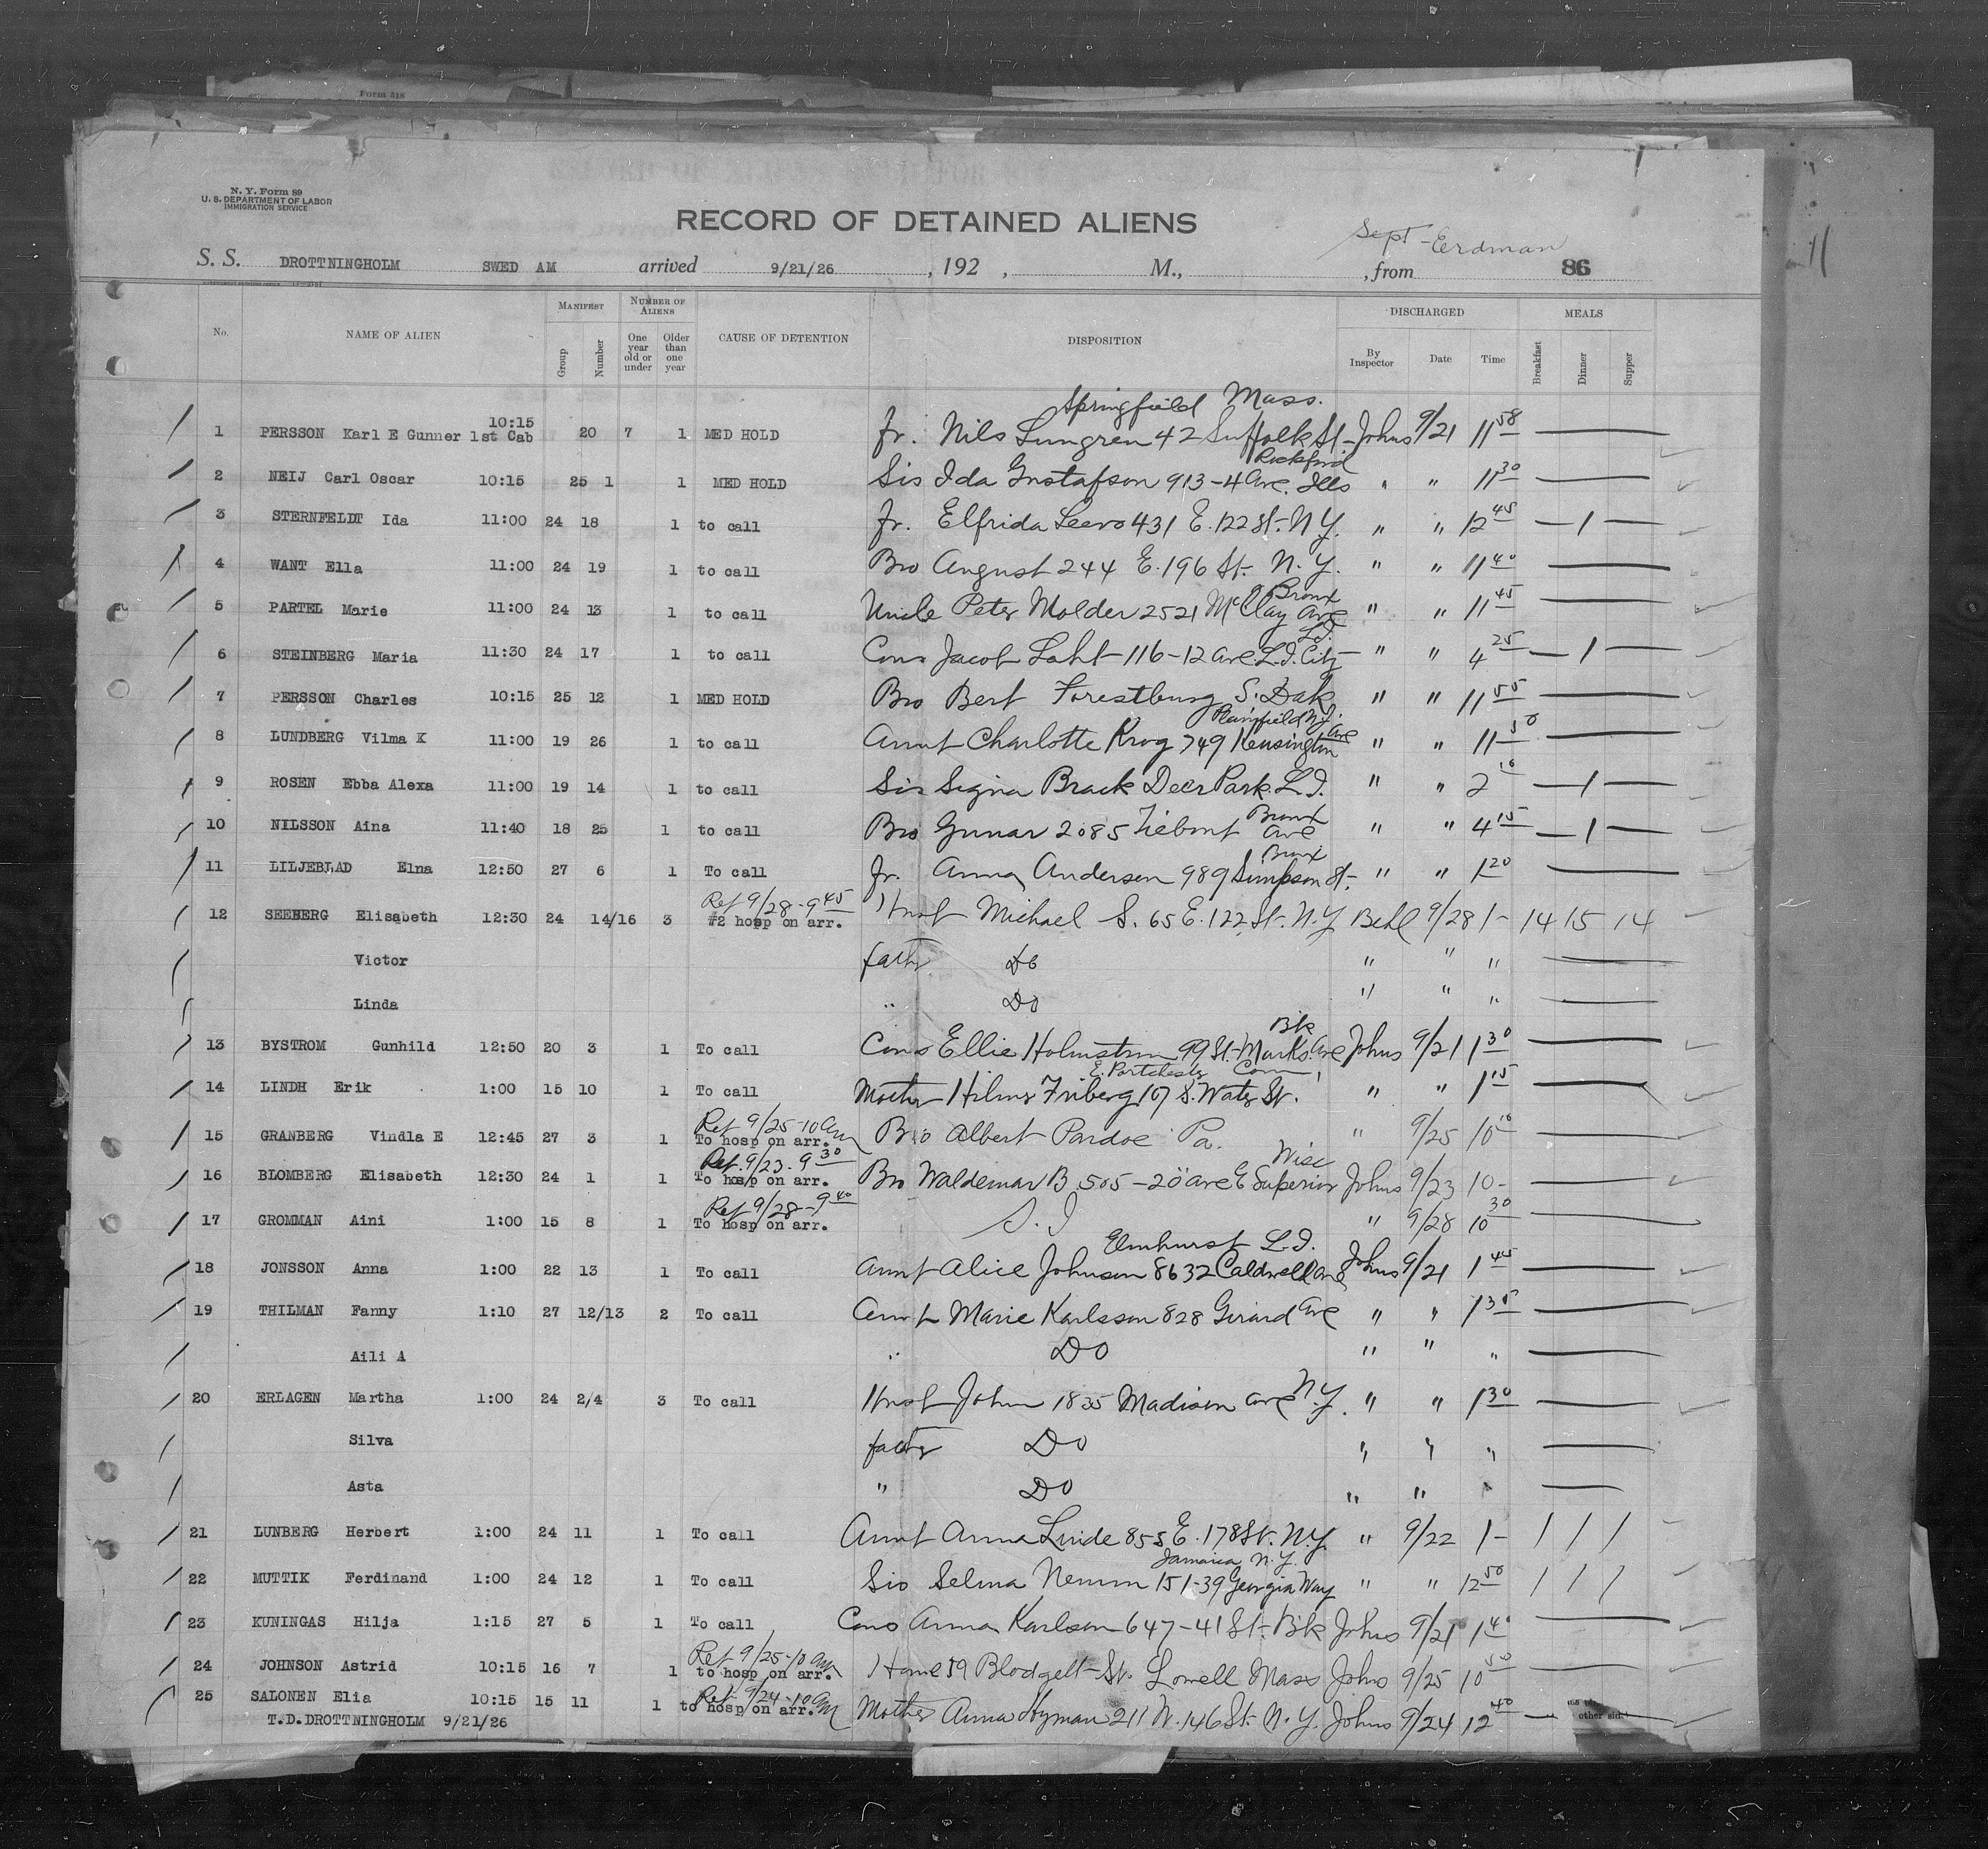 Form 518
N. Y. Form 89
U. S. DEPARTMENT OF LABOR
IMMIGRATION SERVICE
RECORD OF DETAINED ALIENS
Sept - Erdman
S. S. DROTTNINGHOLM SWED AM arrived 9/21/26, 192 , M., , from 86
No. NAME OF ALIEN MANIFEST Group Number NUMBER OF ALIENS One year old or under Older than one year CAUSE OF DETENTION DISPOSITION DISCHARGED By Inspector Date Time MEALS Breakfast Dinner Supper
Springfield Mass.
10:15
1 PERSSON Karl E Gunner 1st Cab 20 7 1 MED HOLD Fr. Nils Lungren 42 Suffolk St - Johns 9/21 11 58
Rockford
2 NEIJ Carl Oscar 10:15 25 1 1 MED HOLD Sis Ida Gustafson 913-4 Ave. Ills " " 11 30
3 STERNFELDT Ida 11:00 24 18 1 to call Fr. Elfrida Leevo 431 E. 122 St. N.Y. " " 12 45 — 1 —
4 WANT Ella 11:00 24 19 1 to call Bro August 244 E. 196 St. N.Y. " " 11 40
Bronx
5 PARTEL Marie 11:00 24 13 1 to call Uncle Peter Molder 2521 McClay Ave " " 11 45
L.I.
6 STEINBERG Maria 11:30 24 17 1 to call Cons Jacob Laht 116-12 Ave L.I. City " " 4 25 — 1 —
7 PERSSON Charles 10:15 25 12 1 MED HOLD Bro Bert Forestburg S. Dak " " 11 55
Plainfield N.J.
8 LUNDBERG Vilma K 11:00 19 26 1 to call Aunt Charlotte Krog 749 Kensington Ave " " 11 50
9 ROSEN Ebba Alexa 11:00 19 14 1 to call Sis Signa Brack Deer Park L.I. " " 2 10 — 1 —
Bronx
10 NILSSON Aina 11:40 18 25 1 to call Bro Gunar 2085 Tiebout Ave " " 4 15 — 1 —
Bronx
11 LILJEBLAD Elna 12:50 27 6 1 To call Fr. Anna Anderson 989 Simpson St. " " 1 20
Ret 9/28-9 45
12 SEEBERG Elisabeth 12:30 24 14/16 3 #2 hosp on arr. Husb Michael S. 65 E. 122 St. N.Y Behl 9/28 1- 14 15 14
Victor father Do " " "
Linda " Do " " "
Blk
13 BYSTROM Gunhild 12:50 20 3 1 To call Cons Ellie Holmstrom 99 St. Marks Ave Johns 9/21 1 30
E. Portchester Conn.
14 LINDH Erik 1:00 15 10 1 To call Mother Hilma Friberg 107 S. Water St. " " 1 15
Ret 9/25-10 am
15 GRANBERG Vindla E 12:45 27 3 1 To hosp on arr. Bro Albert Pardoe Pa. " 9/25 10 10
Ret. 9/23. 9 30 Wisc
16 BLOMBERG Elisabeth 12:30 24 1 1 To hosp on arr. Bro Waldemar B. 505-20 Ave E Superior Johns 9/23 10-
Ret 9/28-9 40
17 GROMMAN Aini 1:00 15 8 1 To hosp on arr. S. I " 9/28 10 30
Elmhurst L.I.
18 JONSSON Anna 1:00 22 13 1 To call Aunt Alice Johnson 8632 Caldwell Ave Johns 9/21 1 45
19 THILMAN Fanny 1:10 27 12/13 2 To call Aunt Marie Karlsson 828 Girard Ave " " 1 35
Aili A " Do " " "
20 ERLAGEN Martha 1:00 24 2/4 3 To call Husb John 1835 Madison Ave N.Y. " " 1 30
Silva father Do " " "
Asta " Do " " "
21 LUNBERG Herbert 1:00 24 11 1 To call Aunt Anna Linde 855 E. 178 St. N.Y. " 9/22 1- / / /
Jamaica N.Y.
22 MUTTIK Ferdinand 1:00 24 12 1 To call Sis Selma Nemm 151-39 Georgia Way " " 12 50 / / /
23 KUNINGAS Hilja 1:15 27 5 1 To call Cons Anna Karlson 647-41 St. Blk Johns 9/21 1 40
Ret 9/25-10 am
24 JOHNSON Astrid 10:15 16 7 1 to hosp on arr. Home 59 Blodgett St. Lowell Mass Johns 9/25 10 50
Ret 9/24-10 am
25 SALONEN Elia 10:15 15 11 1 to hosp on arr. Mother Anna Hyman 211 W. 146 St. N.Y. Johns 9/24 12 40
T.D. DROTTNINGHOLM 9/21/26
other side